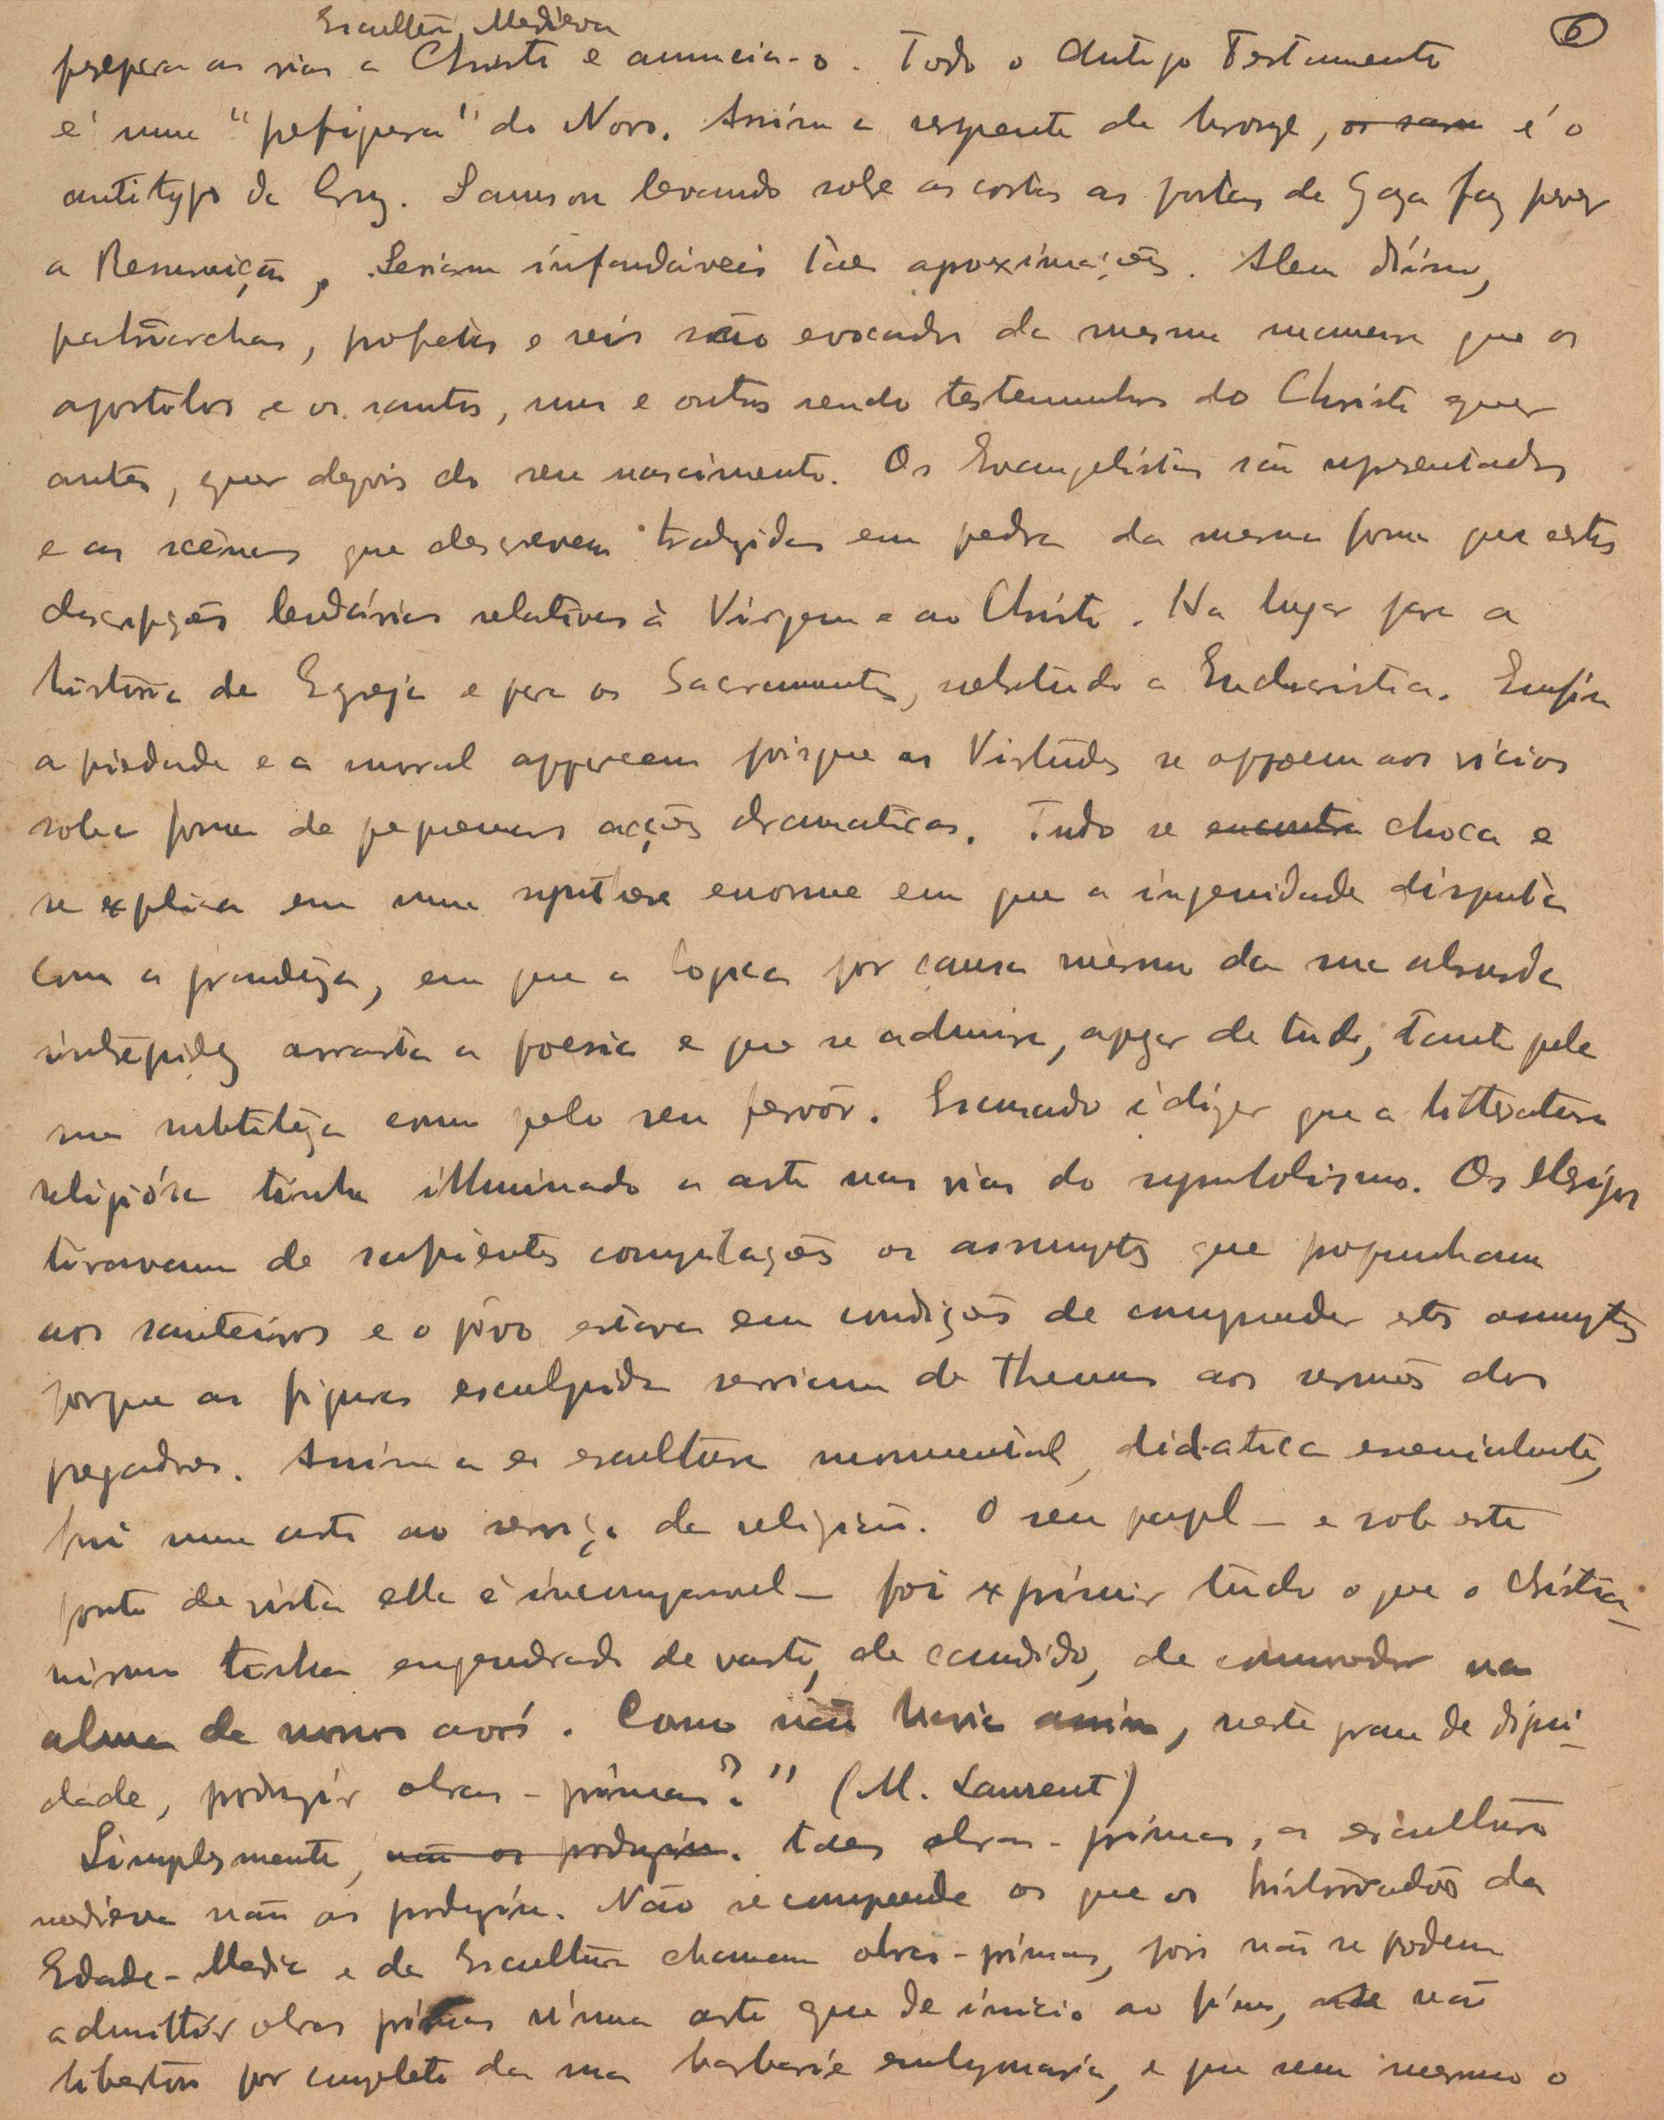 Escultura Medieva
6
prepara as vias a Christo e annuncia-o. Todo o Antigo Testamento
é uma "prefigura" do Novo. Assim a serpente de bronze, é o
antitypo da Cruz. Samson levando sobre as costas as portas de Gaza faz prever
a Ressurreição, Seriam infindáveis táes aproximações. Alem disso,
patriarchas, profetas e reis são evocados da mesma maneira que os
apostolos e os santos, uns e outros sendo testemunhos do Christo quer
antes, quer depois do seu nascimento. Os Evangelistas são representados
e as scênas que descrevem traduzidas em pedra da mesma forma que estas
descripções lendárias relativas à Virgem e ao Christo. Ha lugar para a
história da Egreja e para os Sacramentos, sobretudo a Eucharistia. Emfim
a piedade e a moral apparecem porque as Virtudes se oppoem aos vicios
sob a forma de pequenas acções dramaticas. Tudo se encontra choca e
se explica em uma synthese enorme em que a ingenuidade disputa
com a grandeza, em que a logica por causa mesmo da sua absurda
intrepidez arrasta a poesia e que se admira, apezar de tudo, tanto pela
sua subtileza como pelo seu fervôr. Escusado é dizer que a litteratura
religiósa tinha illuminado a arte nas vias do symbolismo. Os clerigos
tiravam de sapientes compilações os assumptos que propunham
aos santeiros e o povo estava em condições de comprehender estes assumptos
porque as figuras esculpidas serviam de themas aos sermões dos
pregadores. Assim a escultura monumental, didatica essencialmente,
foi uma arte ao serviço da religião. O seu papel – e sob este
ponto de vista ella é incomparavel – foi exprimir tudo o que o Christia-
nismo tinha engendrado de vasto, de candido, de commovedor na
alma de nossos avós. Como não havia assim, neste grau de digni-
dade, produzir obras-primas?" (M. Laurent)
Simplesmente, não as produziu. táes obras-primas, a escultura
medieva não as produziu. Não se comprehende os que os historiadores da
Edade-Media e da Escultura chamam obras-primas, pois não se podem
admittir obras primas n'uma arte que de inicio ao fim, não
libertou por completo da sua barbarie embryonaria, e que nem mesmo o